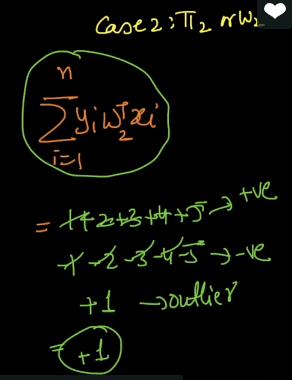 Case 2: π₂ or w₂
n
Σ yᵢ w₂ᵀ xᵢ
i=1
= 1+2+3+4+5 → +ve
-1-2-3-4-5 → -ve
+1 → outlier
= +1